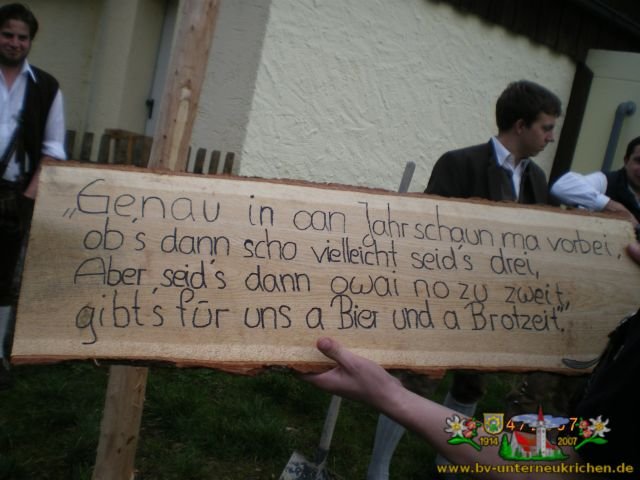 „Genau in oan Jahr schaun ma vorbei,
ob's dann scho vielleicht seid's drei,
Aber, seid's dann owai no zu zweit,
gibt's für uns a Bier und a Brotzeit"
1914 2007
www.bv-unterneukirchen.de